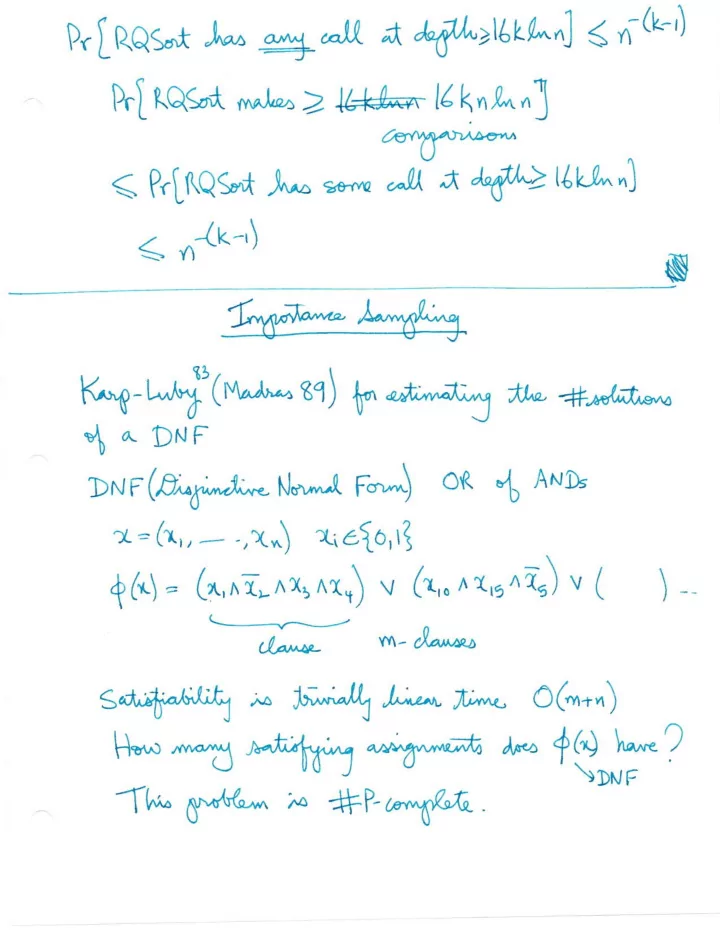 Pr[RQSort has any call at depth ≥ 16k ln n] ≤ n^-(k-1)
Pr[RQSort makes ≥ 16k ln n 16kn ln n]
comparisons
≤ Pr[RQSort has some call at depth ≥ 16k ln n]
≤ n^-(k-1)
Importance Sampling
Karp-Luby 83 (Madras 89) for estimating the #solutions
of a DNF
DNF (Disjunctive Normal Form) OR of ANDs
x = (x₁, — .., xₙ) xᵢ ∈ {0,1}
ϕ(x) = (x₁ ∧ x̄₂ ∧ x₃ ∧ x₄) ∨ (x₁₀ ∧ x₁₅ ∧ x̄₅) ∨ ( ) ..
clause m-clauses
Satisfiability is trivially linear time O(m+n)
How many satisfying assignments does ϕ(x) have?
↘DNF
This problem is #P-complete.